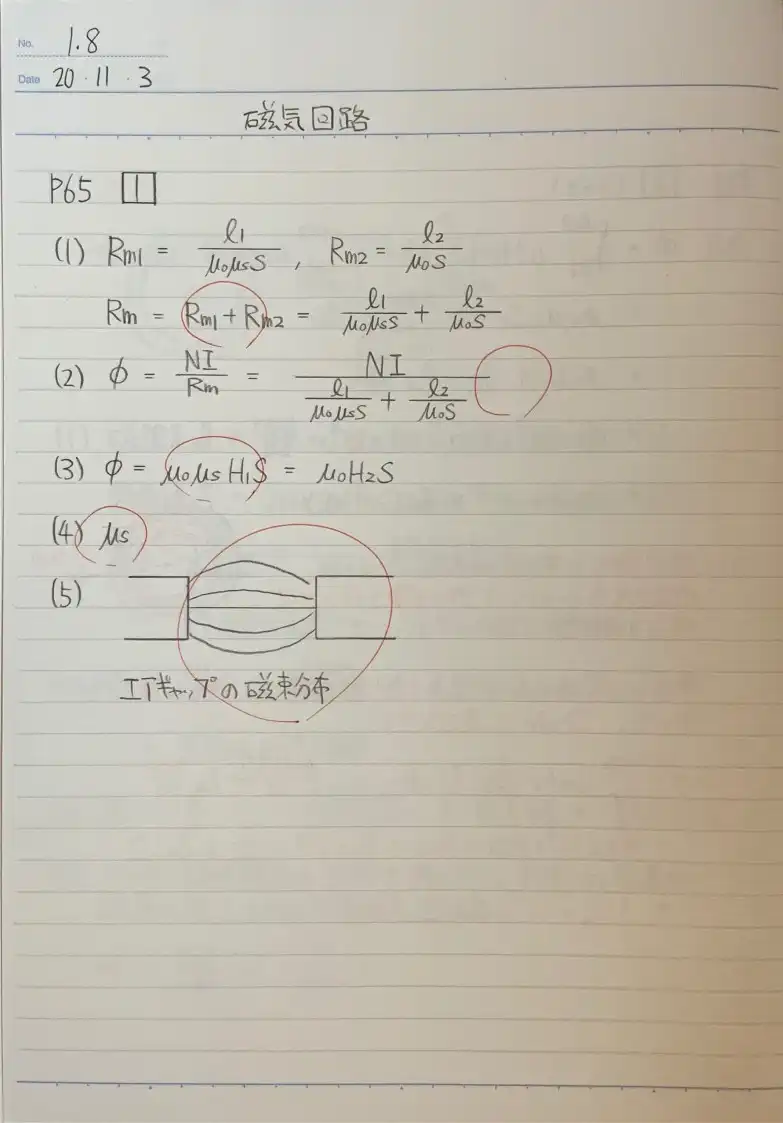 No. 1.8
Date 20・11・3
磁気回路
P65 1
(1) Rm1 = ℓ1/μ0μsS , Rm2 = ℓ2/μ0S
Rm = Rm1 + Rm2 = ℓ1/μ0μsS + ℓ2/μ0S
(2) ϕ = NI/Rm = NI/(ℓ1/μ0μsS + ℓ2/μ0S)
(3) ϕ = μ0μsH1S = μ0H2S
(4) μs
(5)
エアギャップの磁束分布